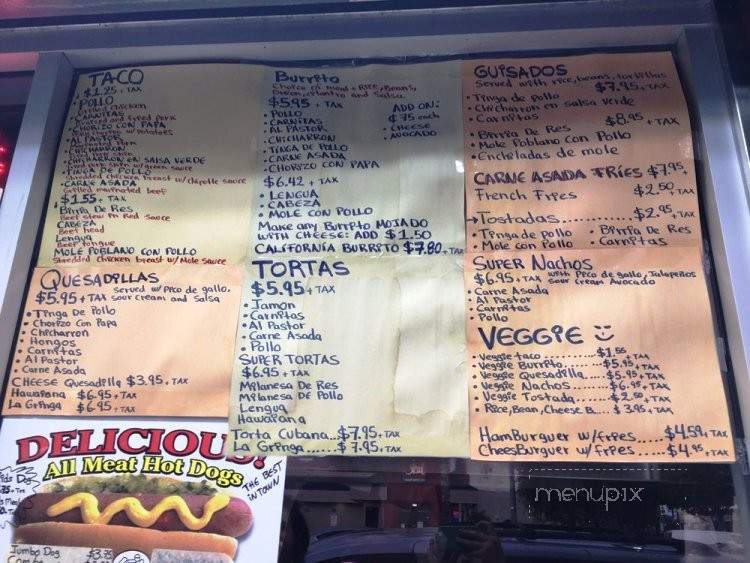 TACO
$1.25 + TAX
POLLO
chicken
CARNITAS
fried pork
CHORIZO CON PAPA
w/ potatoes
AL PASTOR
pork
CHICHARRON
CHICHARRON EN SALSA VERDE
TINGA DE POLLO
Shredded chicken breast w/ chipotle sauce
CARNE ASADA
Grilled marinated beef
$1.55 + TAX
Birria De Res
Beef stew in Red sauce
CABEZA
Beef head
Lengua
Beef tongue
MOLE POBLANO CON POLLO
Shredded chicken breast w/ Mole sauce
QUESADILLAS
$5.95 + TAX served w/ Pico de gallo, sour cream and salsa
• Tinga De Pollo
• Chorizo Con Papa
• Chicharron
• Hongos
• Carnitas
• Al Pastor
• Carne Asada
CHEESE Quesadilla $3.95 + TAX
Hawaiiana $6.95 + TAX
La Gringa $6.95 + TAX
Burrito
Choice of meat + Rice, Beans,
Onion, cilantro and Salsa
$5.95 + TAX
• POLLO
• CARNITAS
• AL PASTOR
• CHICHARRON
• TINGA DE POLLO
• CARNE ASADA
• CHORIZO CON PAPA
ADD ON:
¢ 75 each
• CHEESE
• AVOCADO
$6.42 + TAX
• LENGUA
• CABEZA
• MOLE CON POLLO
Make any Burrito MOJADO
WITH CHEESE: ADD $1.50
CALIFORNIA BURRITO $7.80 + TAX
TORTAS
$5.95 + TAX
• Jamon
• Carnitas
• Al Pastor
• Carne Asada
• Pollo
SUPER TORTAS
$6.95 + TAX
Milanesa De Res
Milanesa De Pollo
Lengua
Hawaiana
Torta Cubana...$7.95 + TAX
La Gringa......$7.95 + TAX
GUISADOS
Served with rice, beans, tortillas
$7.95 + TAX
• Tinga de pollo
• Chicharron en salsa verde
• Carnitas
$8.95 + TAX
• Birria De Res
• Mole Poblano Con Pollo
• Enchiladas de mole
CARNE ASADA FRIES $7.95 +
French Fries $2.50 + TAX
Tostadas............$2.95 + TAX
• Tinga de pollo • Birria De Res
• Mole con Pollo • Carnitas
SUPER Nachos
$6.95 + TAX with Pico de gallo, Jalapeños sour cream Avocado
• Carne Asada
• Al Pastor
• Carnitas
• Pollo
VEGGIE
• Veggie taco............$1.55 + TAX
• Veggie Burrito.........$5.95 + TAX
• Veggie Quesadilla....$5.95 + TAX
• Veggie Nachos.......$6.95 + TAX
• Veggie Tostada.......$2.50 + TAX
• Rice, Bean, Cheese B.....$3.95 + TAX
HamBurguer w/fries.....$4.59 + TAX
CheesBurguer w/fries.....$4.95 + TAX
DELICIOUS!
All Meat Hot Dogs
THE BEST
IN TOWN
Jumbo Dog $3.75
menupix